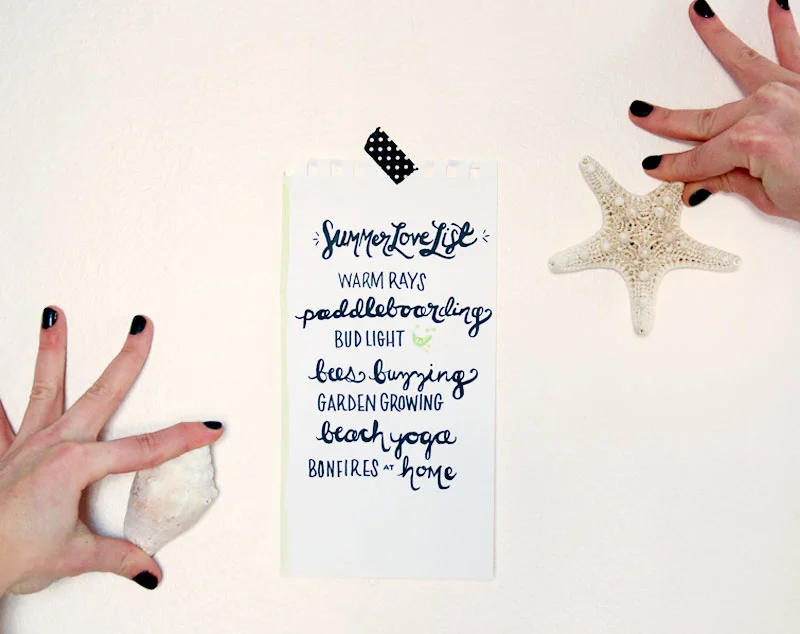 Summer Love List
WARM RAYS
paddleboarding
BUD LIGHT
bees buzzing
GARDEN GROWING
beach yoga
BONFIRES AT home